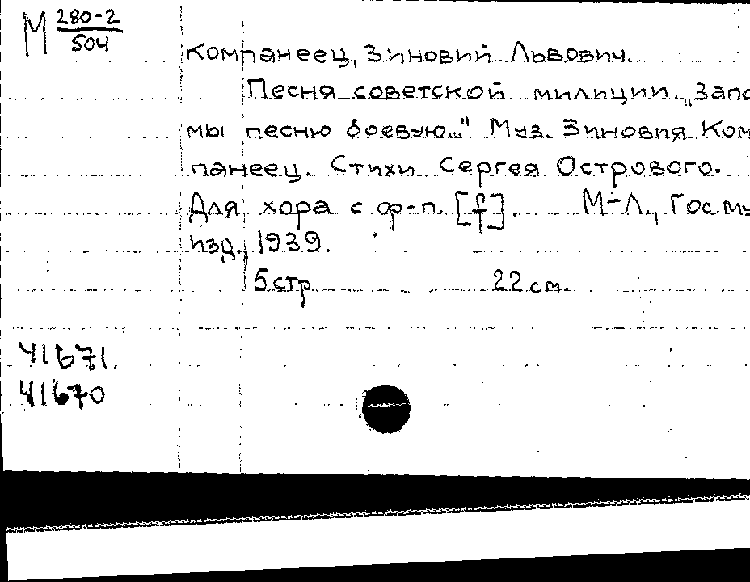 М 280-2
504
Компанеец, Зиновий Львович.
Песня советской милиции. „Запо
мы песню боевую..." Муз. Зиновия Ком
панеец. Стихи Сергея Острового.
Для хора с ф-п. [f]. М-Л., Гос му
изд., 1939.
5 стр 22 см.
41671.
41670